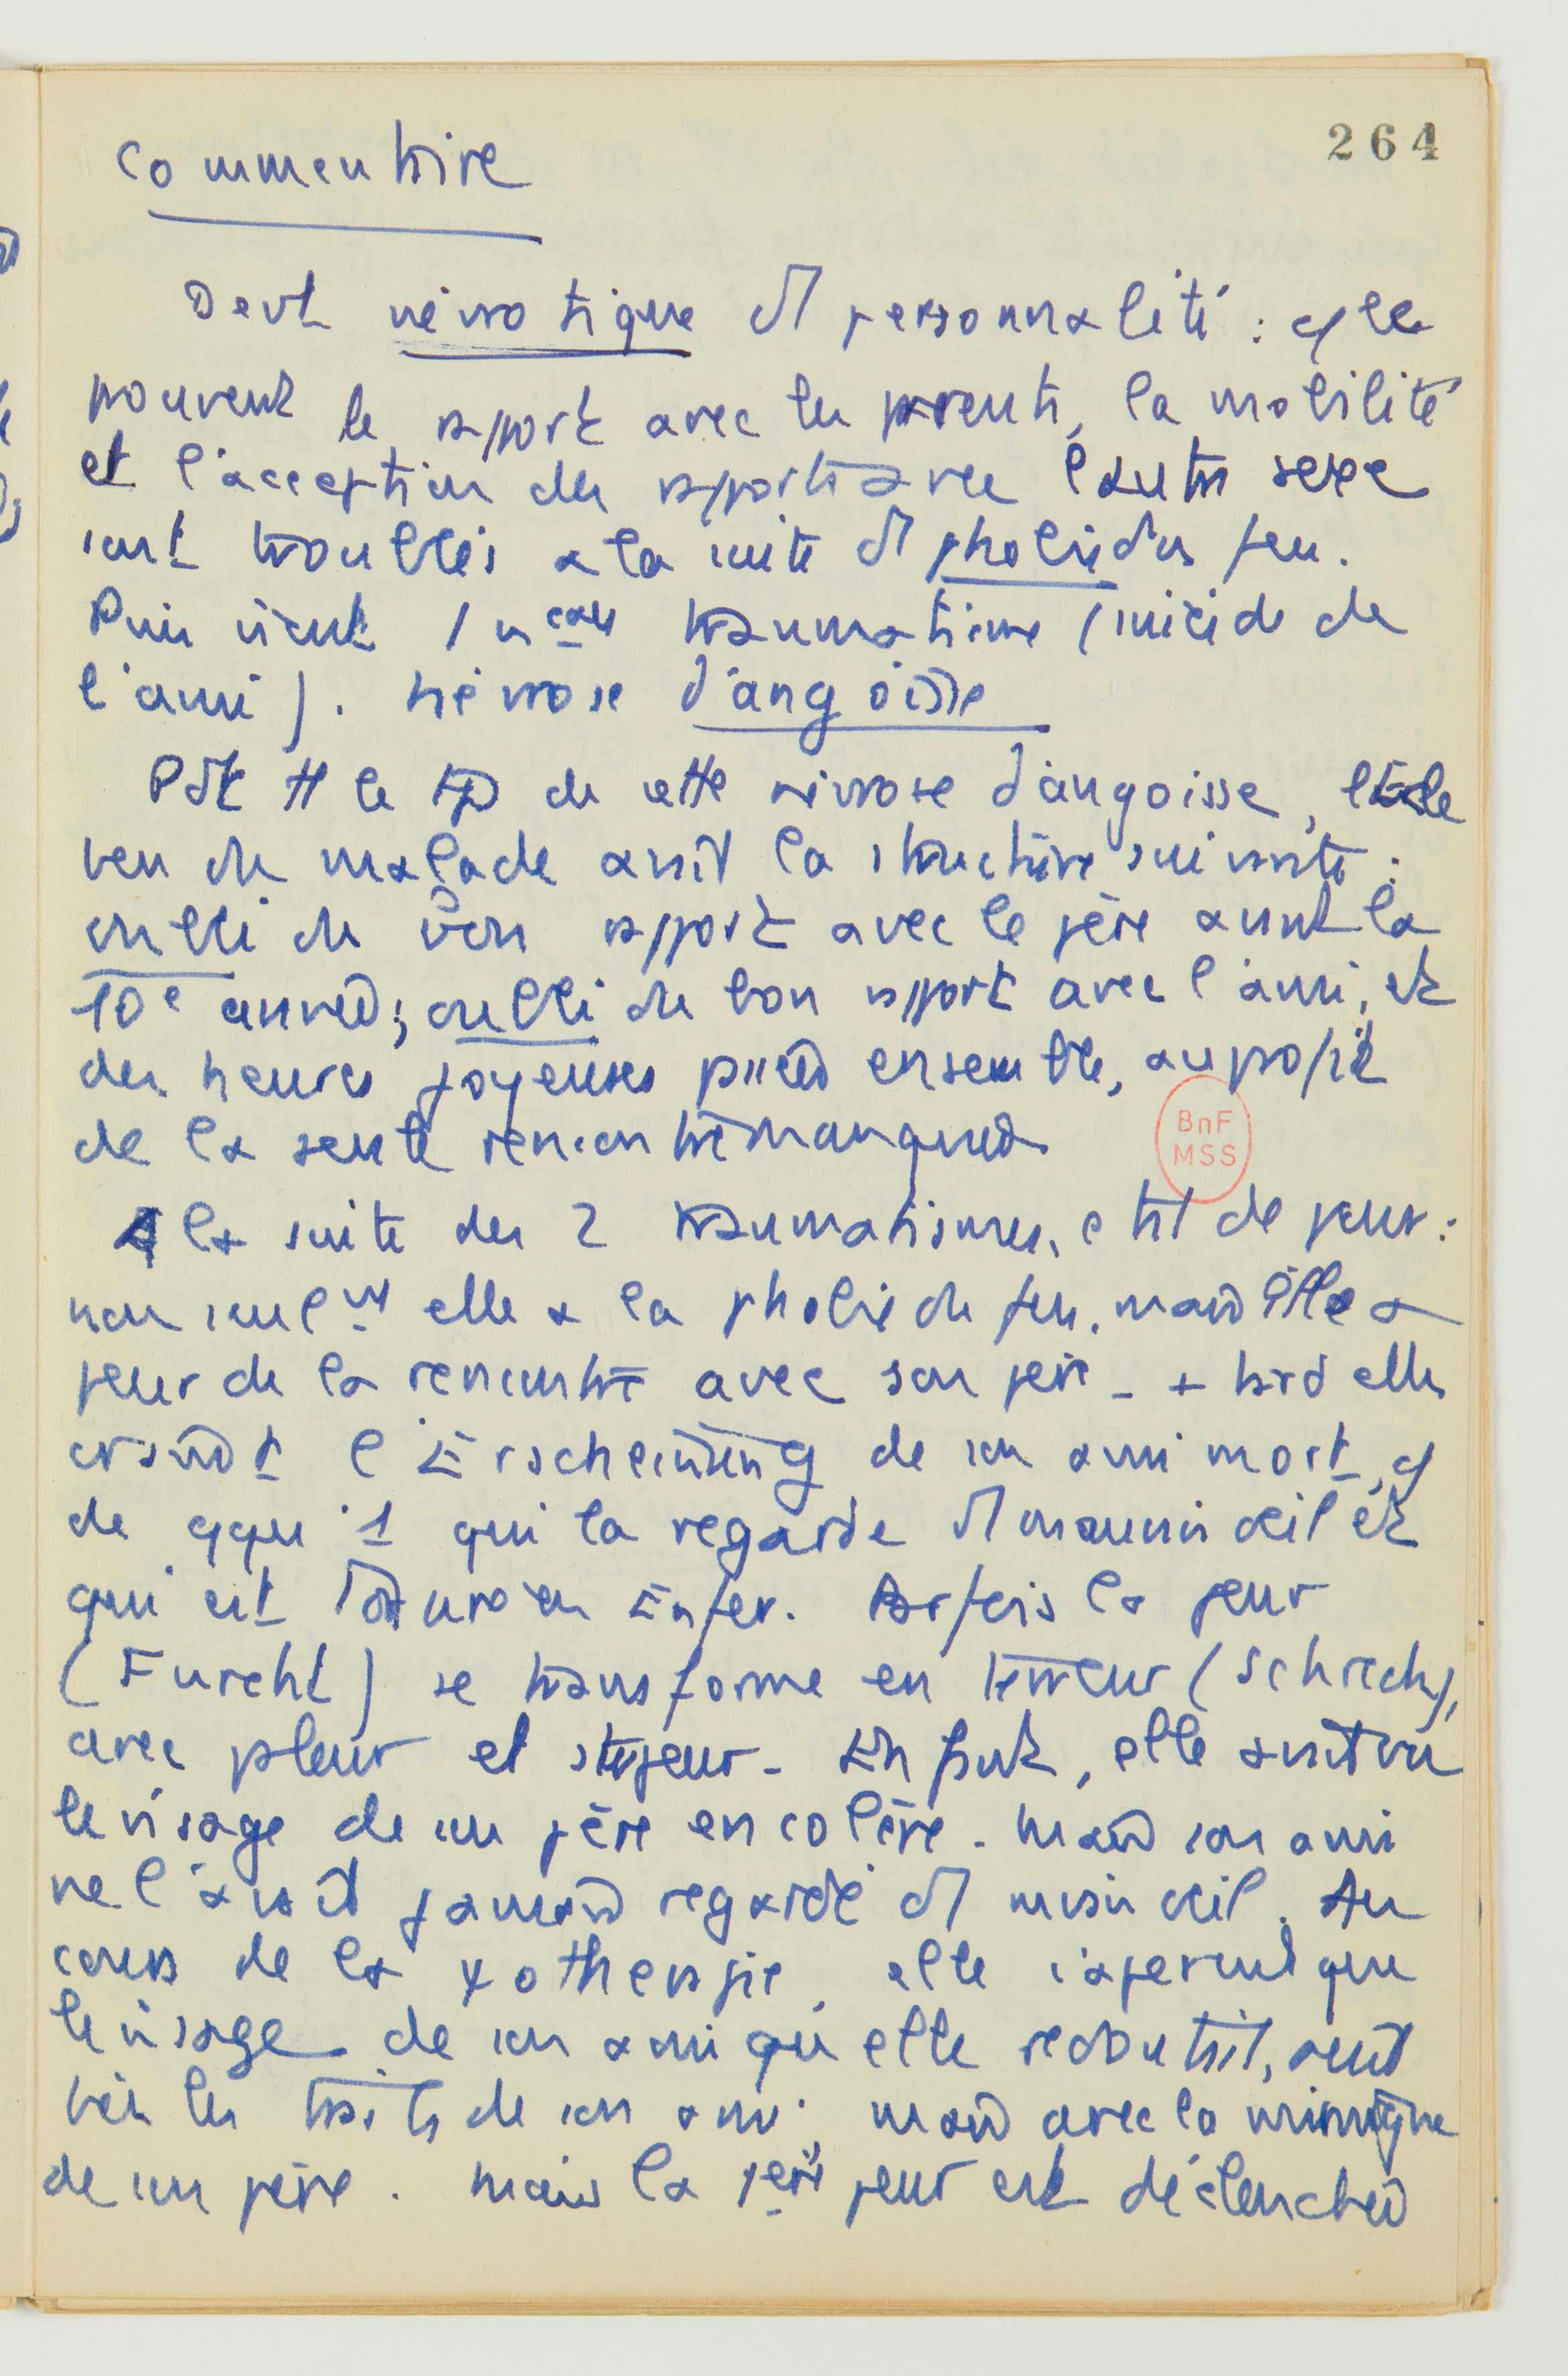 264
Commentaire
Devt névrotique de personnalité : cō le
prouvent le rapport avec les parents, la mobilité
et l'acception des rapports avec l'autre sexe
sont troublés à la suite de phobie du feu.
Puis vient 1 nveau traumatisme (suicide de
l'ami). Névrose d'angoisse
Pdt tt le tps de cette névrose d'angoisse,
de malade avait la structure suivante :
oubli du bon rapport avec le père avant la
10e année ; oubli du bon rapport avec l'ami, et
des heures joyeuses passées ensemble, au profit
de la seule rencontre manquée.
A la suite des 2 traumatismes, état de peur :
non seulmt elle a la phobie du feu, mais elle a
peur de la rencontre avec son père - + tard elle
craint l'Erscheinung de son ami mort, cō
de qqu'1 qui la regarde de mauvais œil et
qui est en Enfer. Parfois la peur
(Furcht) se transforme en terreur (Schreck),
avec pleur et stupeur - En fait, elle avait vu
le visage de son père en colère - mais son ami
ne l'avait jamais regardé de mauvais œil. Au
cours de la ψothérapie, elle s'aperçut que
le visage de son ami qu'elle redoutait, avait
bien les traits de son ami, mais avec la mimique
de son père. Mais la 1ère peur est déclenchée
BnF
MSS